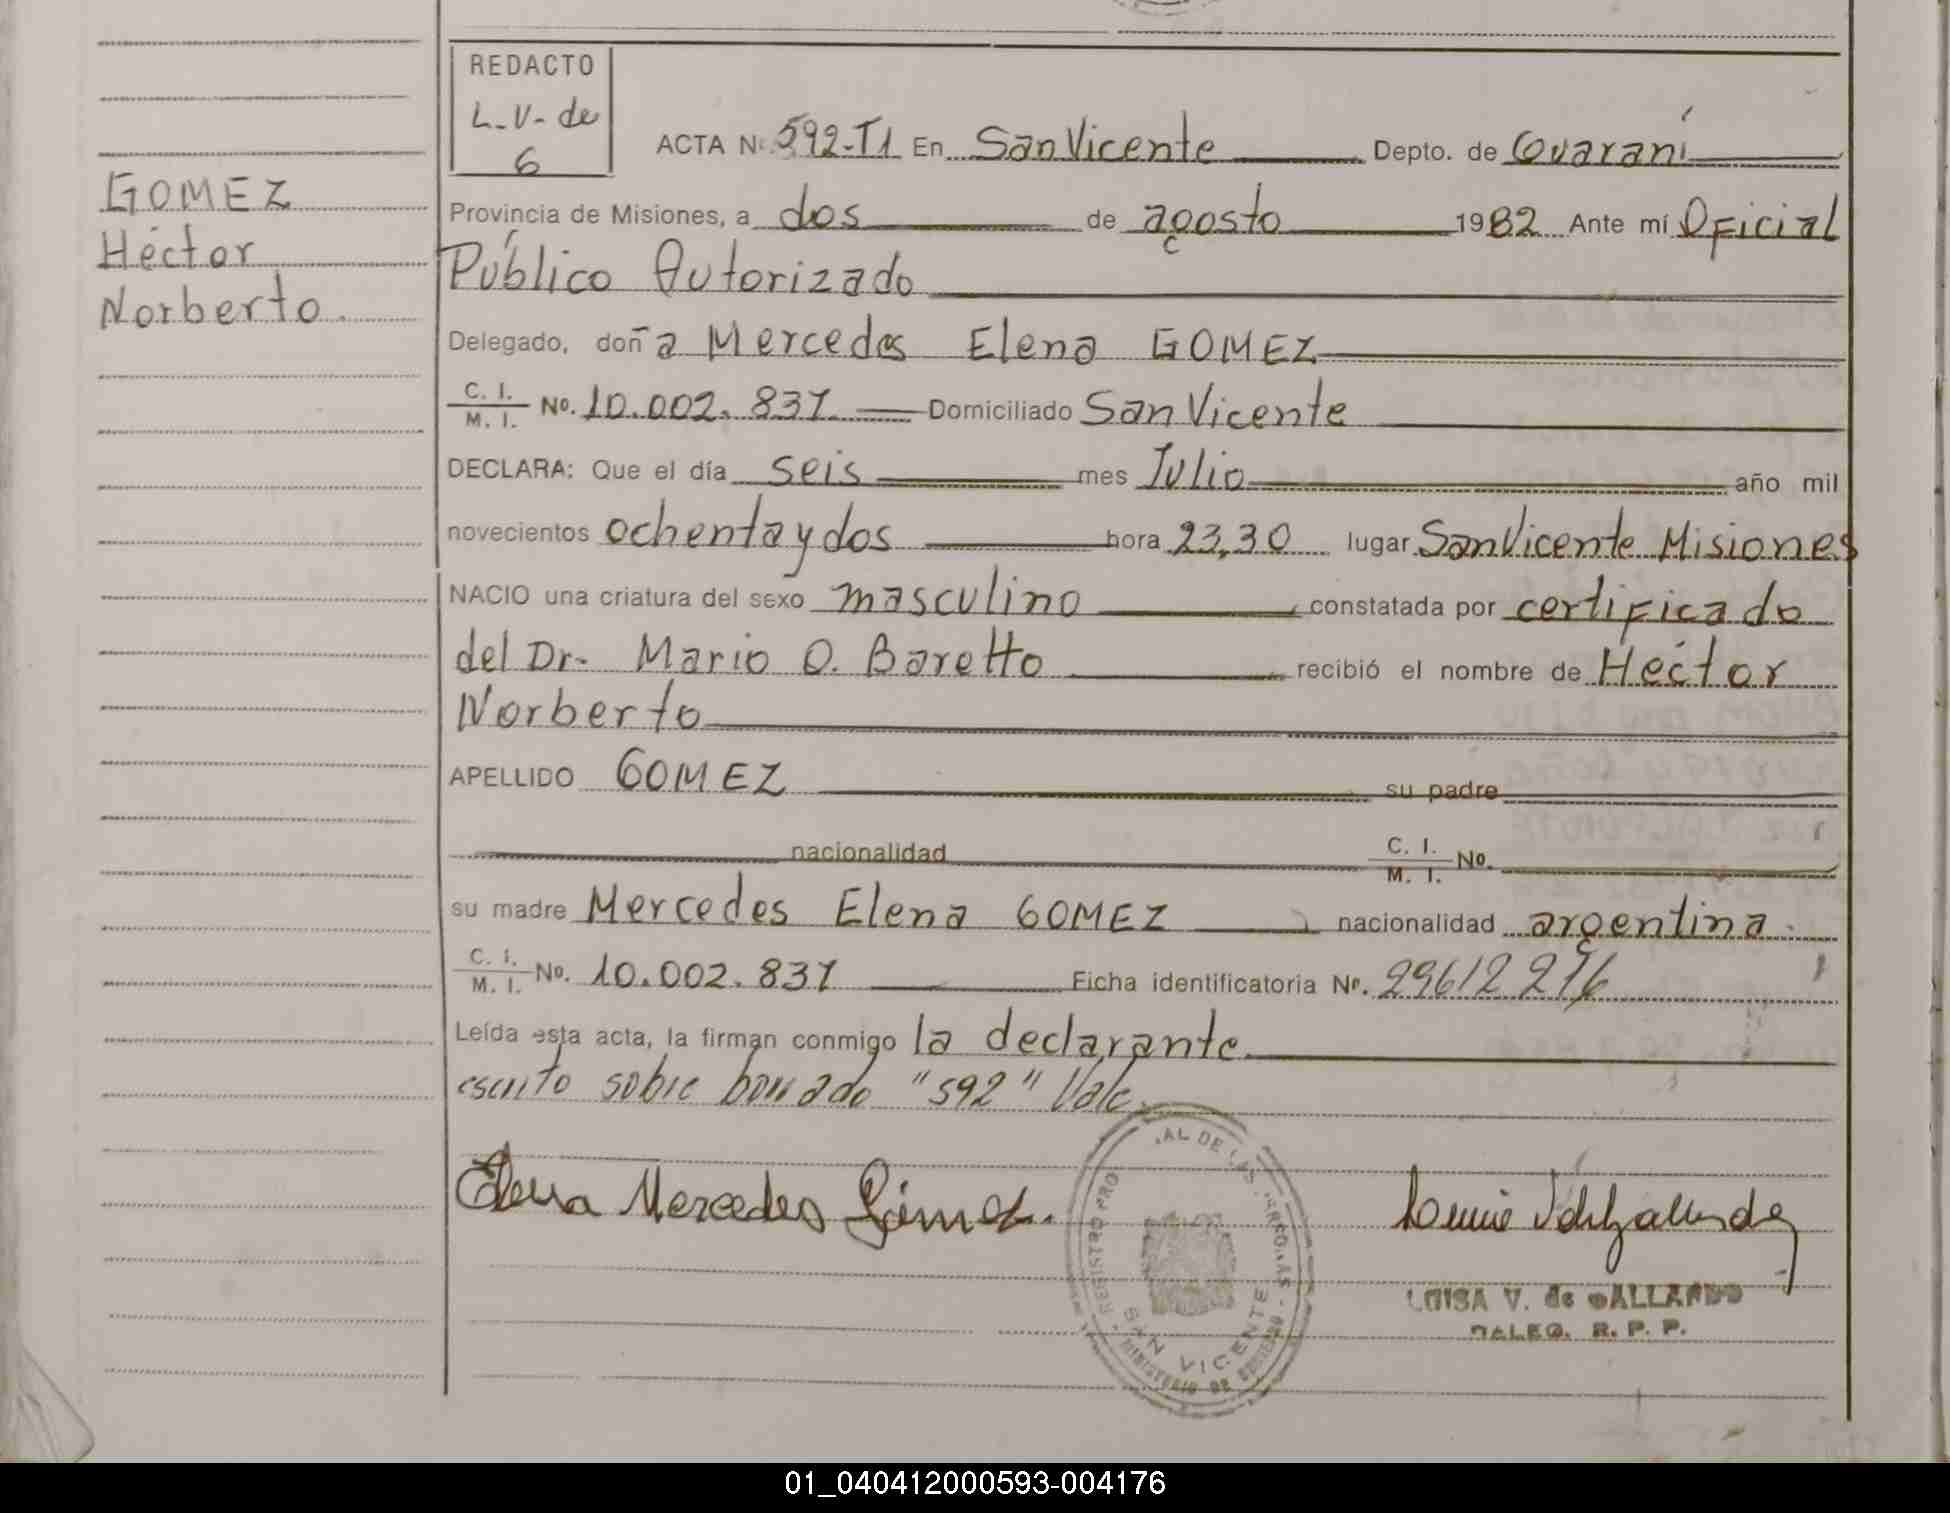 REDACTO
L-V-de
6
ACTA Nº 592-T1 En San Vicente Depto. de Guaraní
GOMEZ
Héctor
Norberto.
Provincia de Misiones, a dos de agosto 1982 Ante mí Oficial
Público Autorizado
Delegado, doña Mercedes Elena GOMEZ
C. I. / M. I. Nº. 10.002.831 Domiciliado San Vicente
DECLARA: Que el día seis mes Julio año mil
novecientos ochenta y dos hora 23,30 lugar San Vicente Misiones
NACIO una criatura del sexo masculino constatada por certificado
del Dr. Mario O. Baretto recibió el nombre de Héctor
Norberto
APELLIDO GOMEZ su padre
nacionalidad C. I. / M. I. Nº.
su madre Mercedes Elena GOMEZ nacionalidad argentina.
C. I. / M. I. Nº. 10.002.831 Ficha identificatoria Nº. 29612276
Leída esta acta, la firman conmigo la declarante.
escrito sobre borrado "592" Vale.
Elena Mercedes Gómez.
REGISTRO PRO AL DE LAS PERSONAS
SAN VICENTE
MINISTERIO DE GOBIERNO
LUISA V. de GALLARDO
DALEG. R. P. P.
01_040412000593-004176